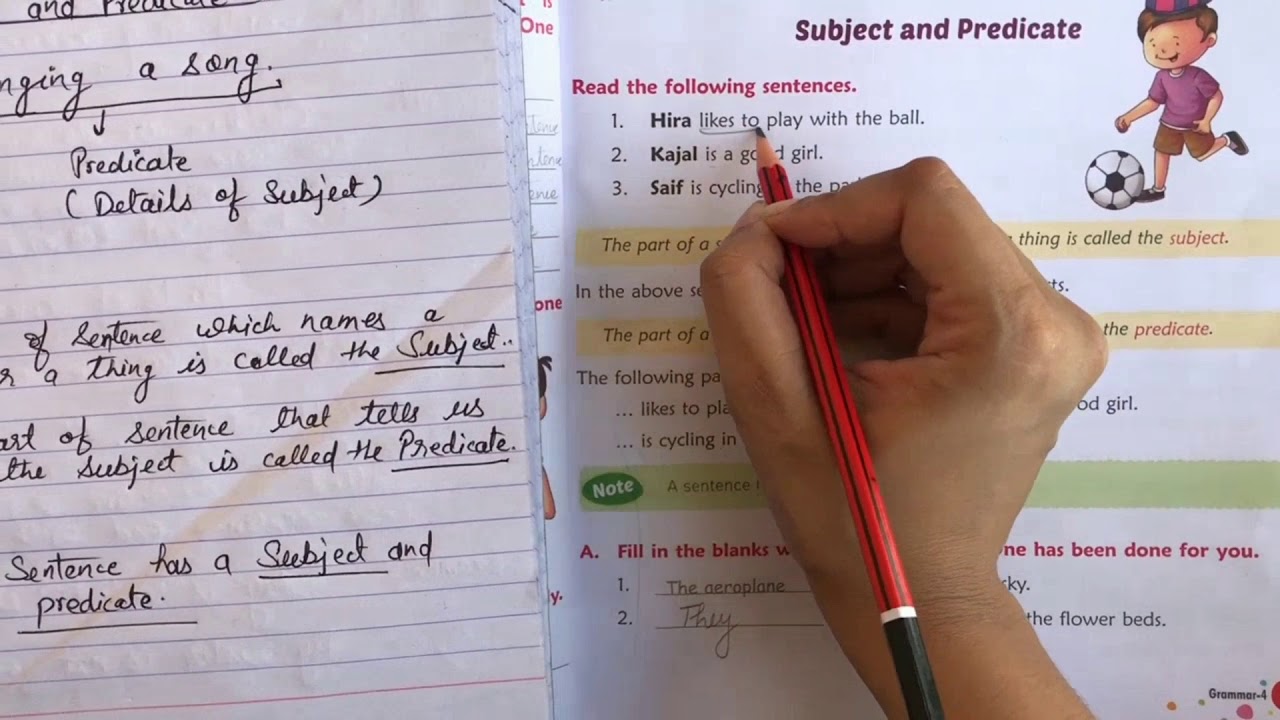 and Predicate
nging a song.
Predicate
(Details of Subject)
of Sentence which names a
r a thing is called the Subject..
art of sentence that tells us
the subject is called the Predicate.
Sentence has a Subject and
predicate.
is
One
tence
ntence
ence
one
y.
Subject and Predicate
Read the following sentences.
1. Hira likes to play with the ball.
2. Kajal is a good girl.
3. Saif is cycling the pa
The part of a s thing is called the subject.
In the above se ts.
The part of a the predicate.
The following pa
... likes to pla od girl.
... is cycling in
Note A sentence
A. Fill in the blanks w ne has been done for you.
1. The aeroplane ky.
2. They the flower beds.
Grammar-4